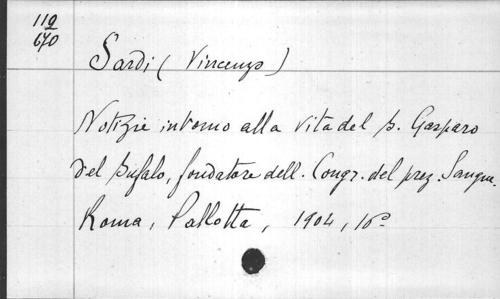 11a
670
Sardi (Vincenzo)
Notizie intorno alla vita del b. Gasparo
del Bufalo, fondatore dell. Congr. del prez. Sangue.
Roma, Pallotta, 1904, 16°